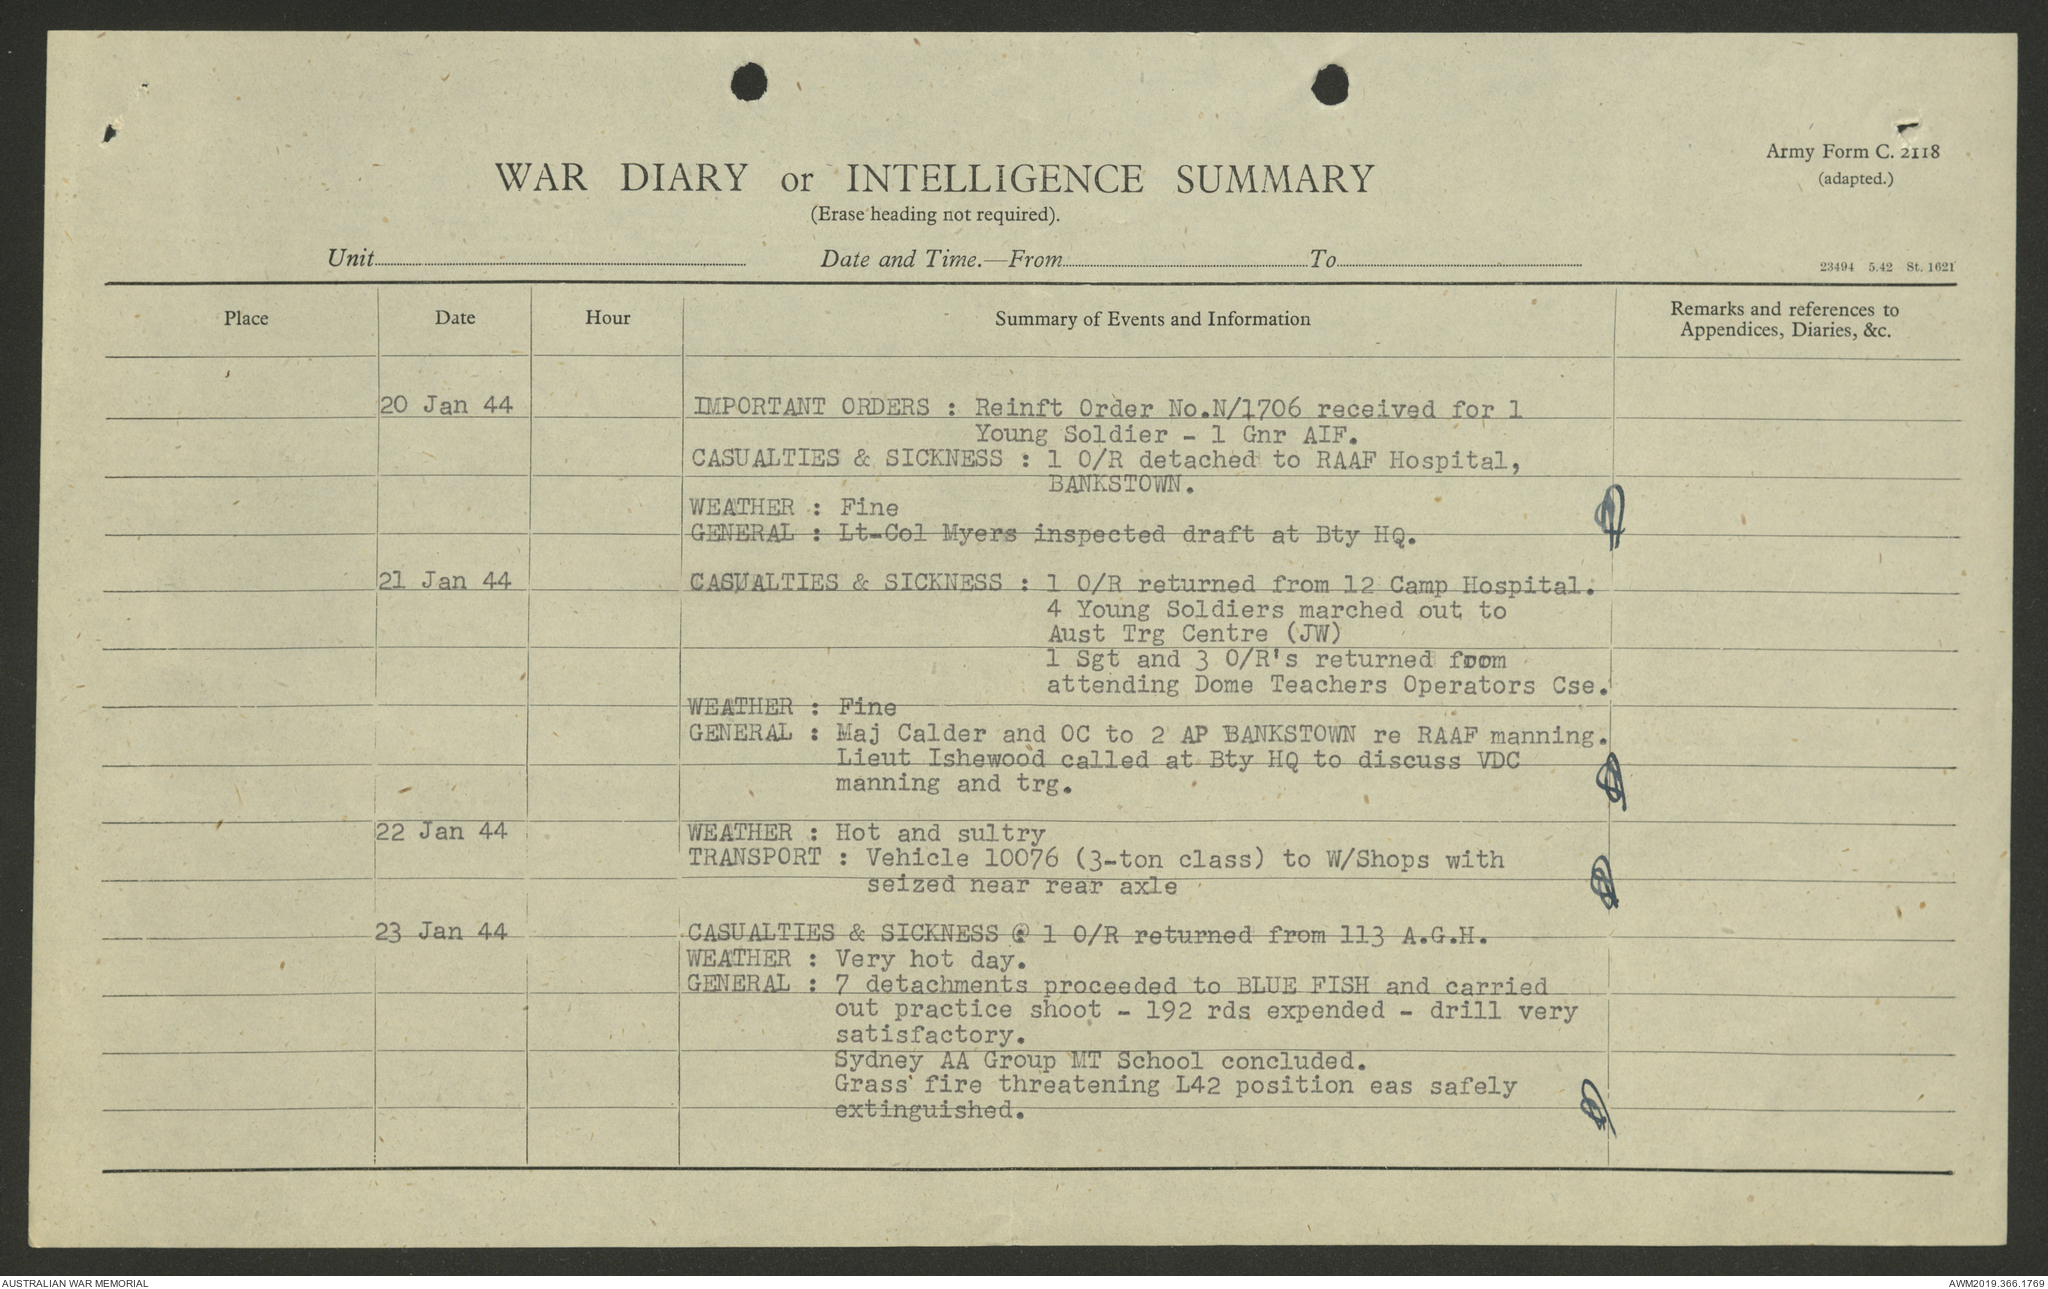 Army Form C. 2118
(adapted.)
WAR DIARY or INTELLIGENCE SUMMARY
(Erase heading not required).
Unit Date and Time.—From To
23494 5.42 St. 1621
Place Date Hour Summary of Events and Information Remarks and references to
Appendices, Diaries, &c.
20 Jan 44 IMPORTANT ORDERS : Reinft Order No.N/1706 received for 1
Young Soldier - 1 Gnr AIF.
CASUALTIES & SICKNESS : 1 O/R detached to RAAF Hospital,
BANKSTOWN.
WEATHER : Fine
GENERAL : Lt-Col Myers inspected draft at Bty HQ.
21 Jan 44 CASUALTIES & SICKNESS : 1 O/R returned from 12 Camp Hospital.
4 Young Soldiers marched out to
Aust Trg Centre (JW)
1 Sgt and 3 O/R's returned from
attending Dome Teachers Operators Cse.
WEATHER : Fine
GENERAL : Maj Calder and OC to 2 AP BANKSTOWN re RAAF manning.
Lieut Ishewood called at Bty HQ to discuss VDC
manning and trg.
22 Jan 44 WEATHER : Hot and sultry
TRANSPORT : Vehicle 10076 (3-ton class) to W/Shops with
seized near rear axle
23 Jan 44 CASUALTIES & SICKNESS @ 1 O/R returned from 113 A.G.H.
WEATHER : Very hot day.
GENERAL : 7 detachments proceeded to BLUE FISH and carried
out practice shoot - 192 rds expended - drill very
satisfactory.
Sydney AA Group MT School concluded.
Grass fire threatening L42 position eas safely
extinguished.
AUSTRALIAN WAR MEMORIAL AWM2019.366.1769